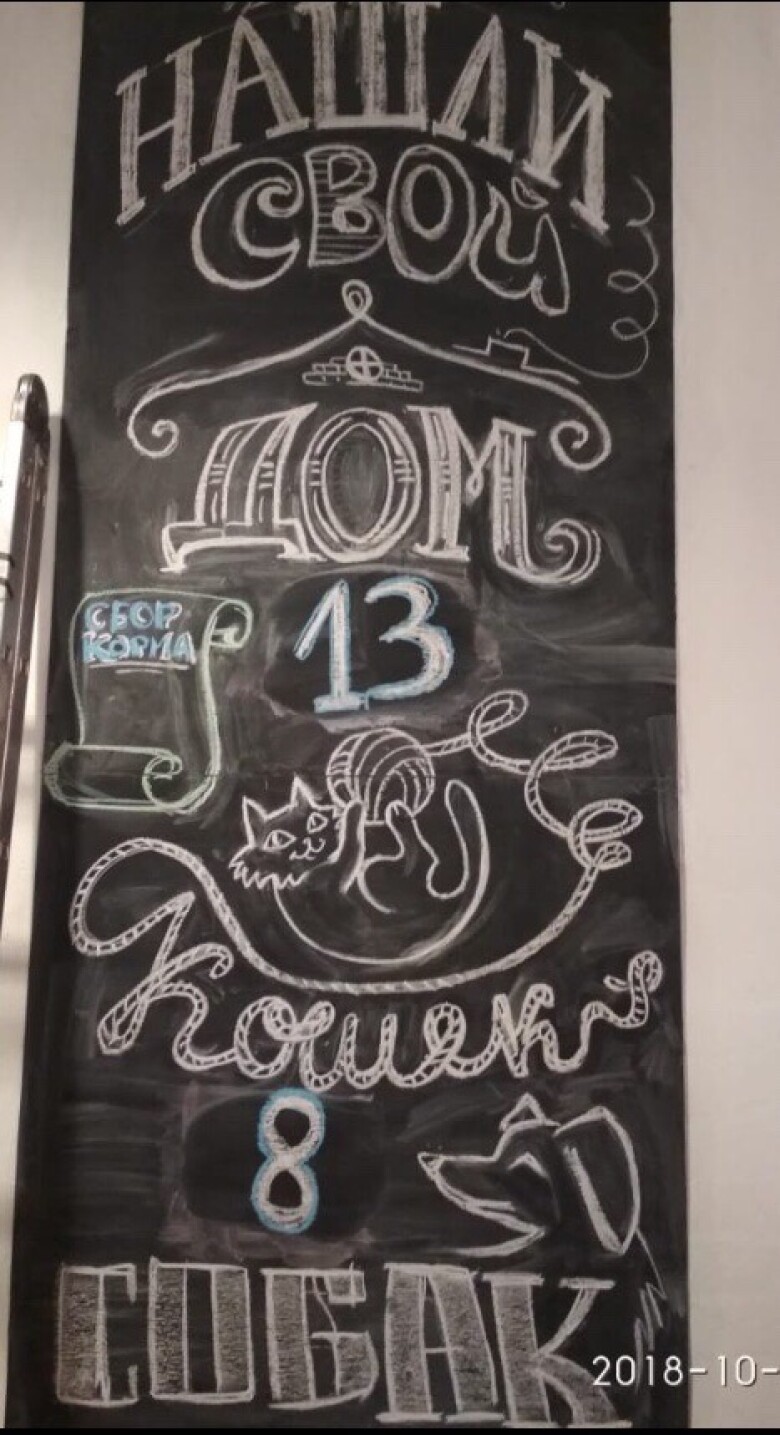 НАШЛИ
СВОЙ
ДОМ
СБОР
КОРМА
13
Кошек
8
СОБАК
2018-10-